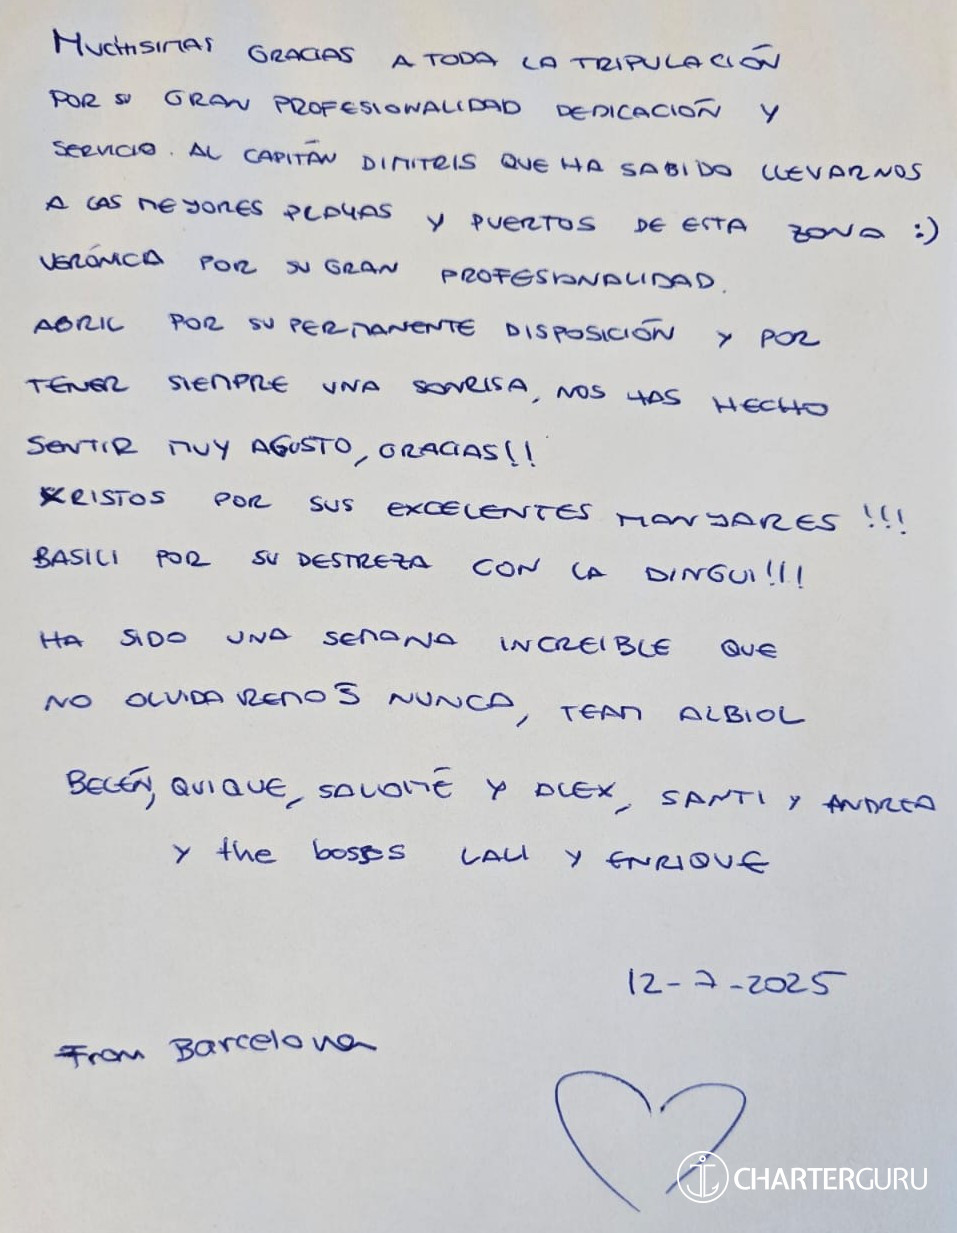 MUCHISIMAS GRACIAS A TODA LA TRIPULACIÓN
POR SU GRAN PROFESIONALIDAD DEDICACIÓN Y
SERVICIO. AL CAPITÁN DIMITRIS QUE HA SABIDO LLEVARNOS
A LAS MEJORES PLAYAS Y PUERTOS DE ESTA ZONA :)
VERÓNICA POR SU GRAN PROFESIONALIDAD.
ABRIL POR SU PERMANENTE DISPOSICIÓN Y POR
TENER SIEMPRE UNA SONRISA, NOS HAS HECHO
SENTIR MUY AGUSTO, GRACIAS!!
KRISTOS POR SUS EXCELENTES MANJARES!!!
BASILI POR SU DESTREZA CON LA DINGUI!!!
HA SIDO UNA SEMANA INCREIBLE QUE
NO OLVIDAREMOS NUNCA, TEAM ALBIOL
BELÉN, QUIQUE, SALOMÉ Y ALEX, SANTI Y ANDREA
Y the bosses LALI Y ENRIQUE
12-7-2025
From Barcelona
CHARTERGURU